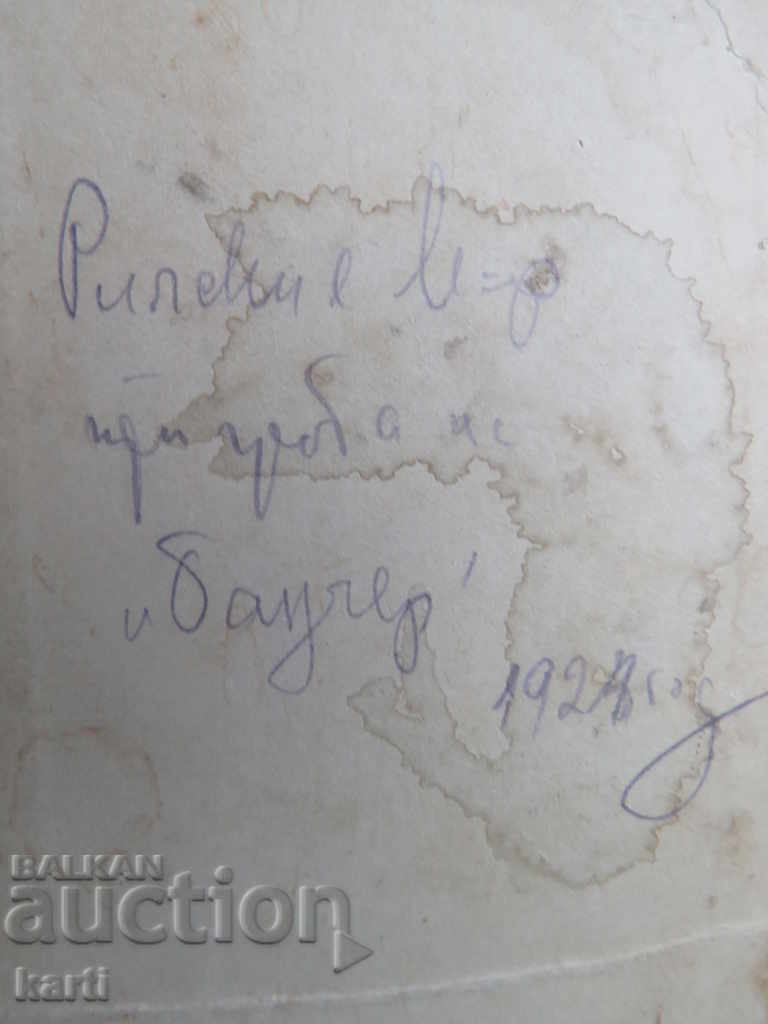 Рилския м-р
при гроба на
„Баучер"
192 год
BALKAN
auction
karti